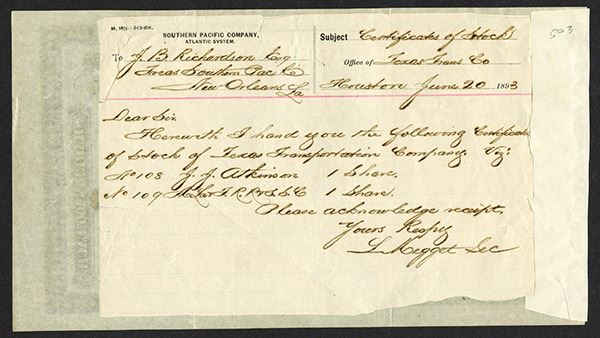 SOUTHERN PACIFIC COMPANY,
ATLANTIC SYSTEM.
To J. B Richardson Esq
Treas Southern Pac Co
New Orleans La
Subject Certificates of Stock
Office of Texas Trans Co
Houston June 20 1893
503
Dear Sir
Herewith I hand you the following Certificates
of Stock of Texas Transportation Company. Viz:
No 108 J. J. Atkinson 1 Share.
No 109 1 Share.
Please acknowledge receipt.
Yours Respy
L Megget Sec